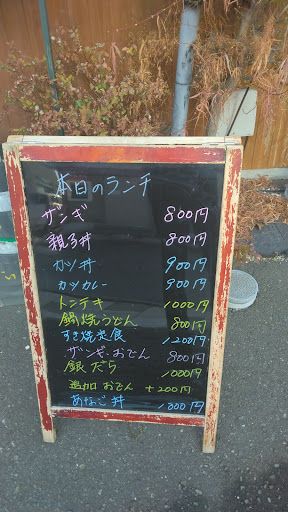 本日のランチ
ザンギ 800円
親子丼 800円
カツ丼 900円
カツカレー 900円
トンテキ 1000円
鍋焼うどん 800円
すき焼定食 1200円
ザンギ・おでん 800円
銀だら 1000円
追加おでん +200円
あなご丼 1000円